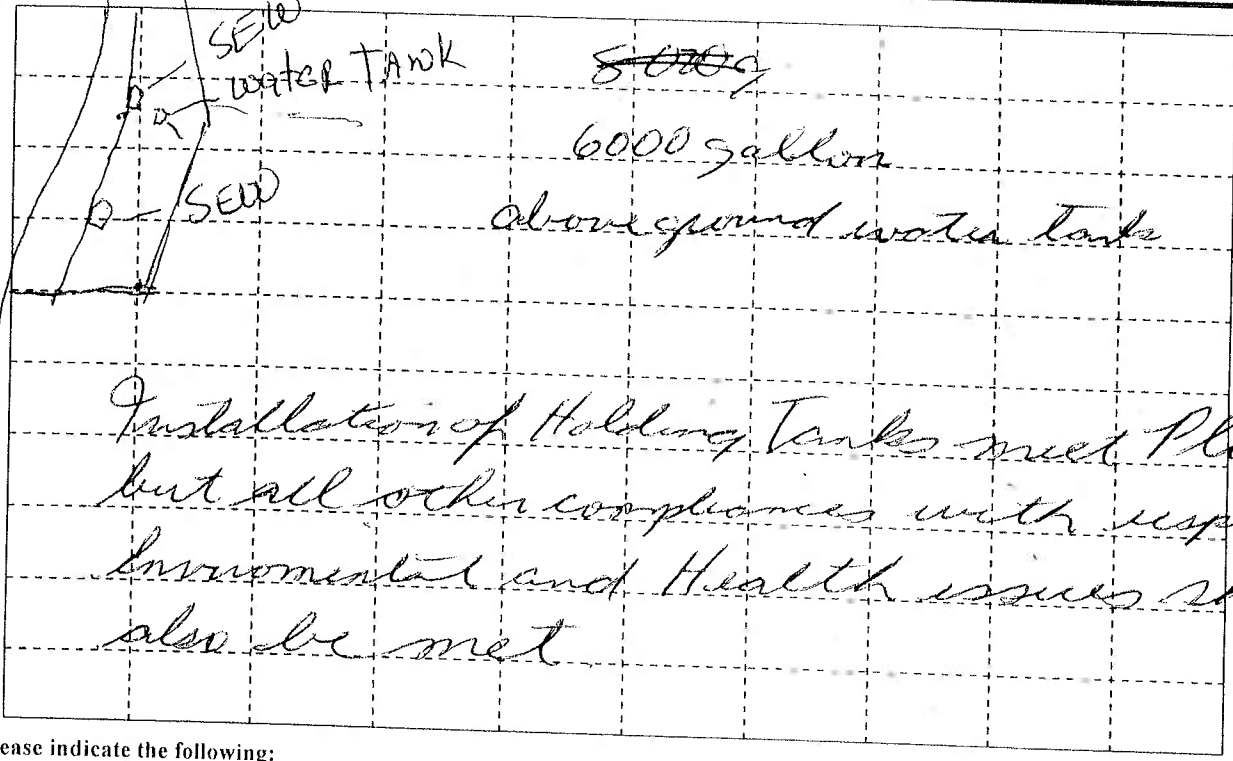 SEW
WATER TANK
6000 gallon
SEW
above ground water tank
Installation of Holding Tanks meet
but all other compliances with
Enviromental and Health issues
also be met
ease indicate the following: